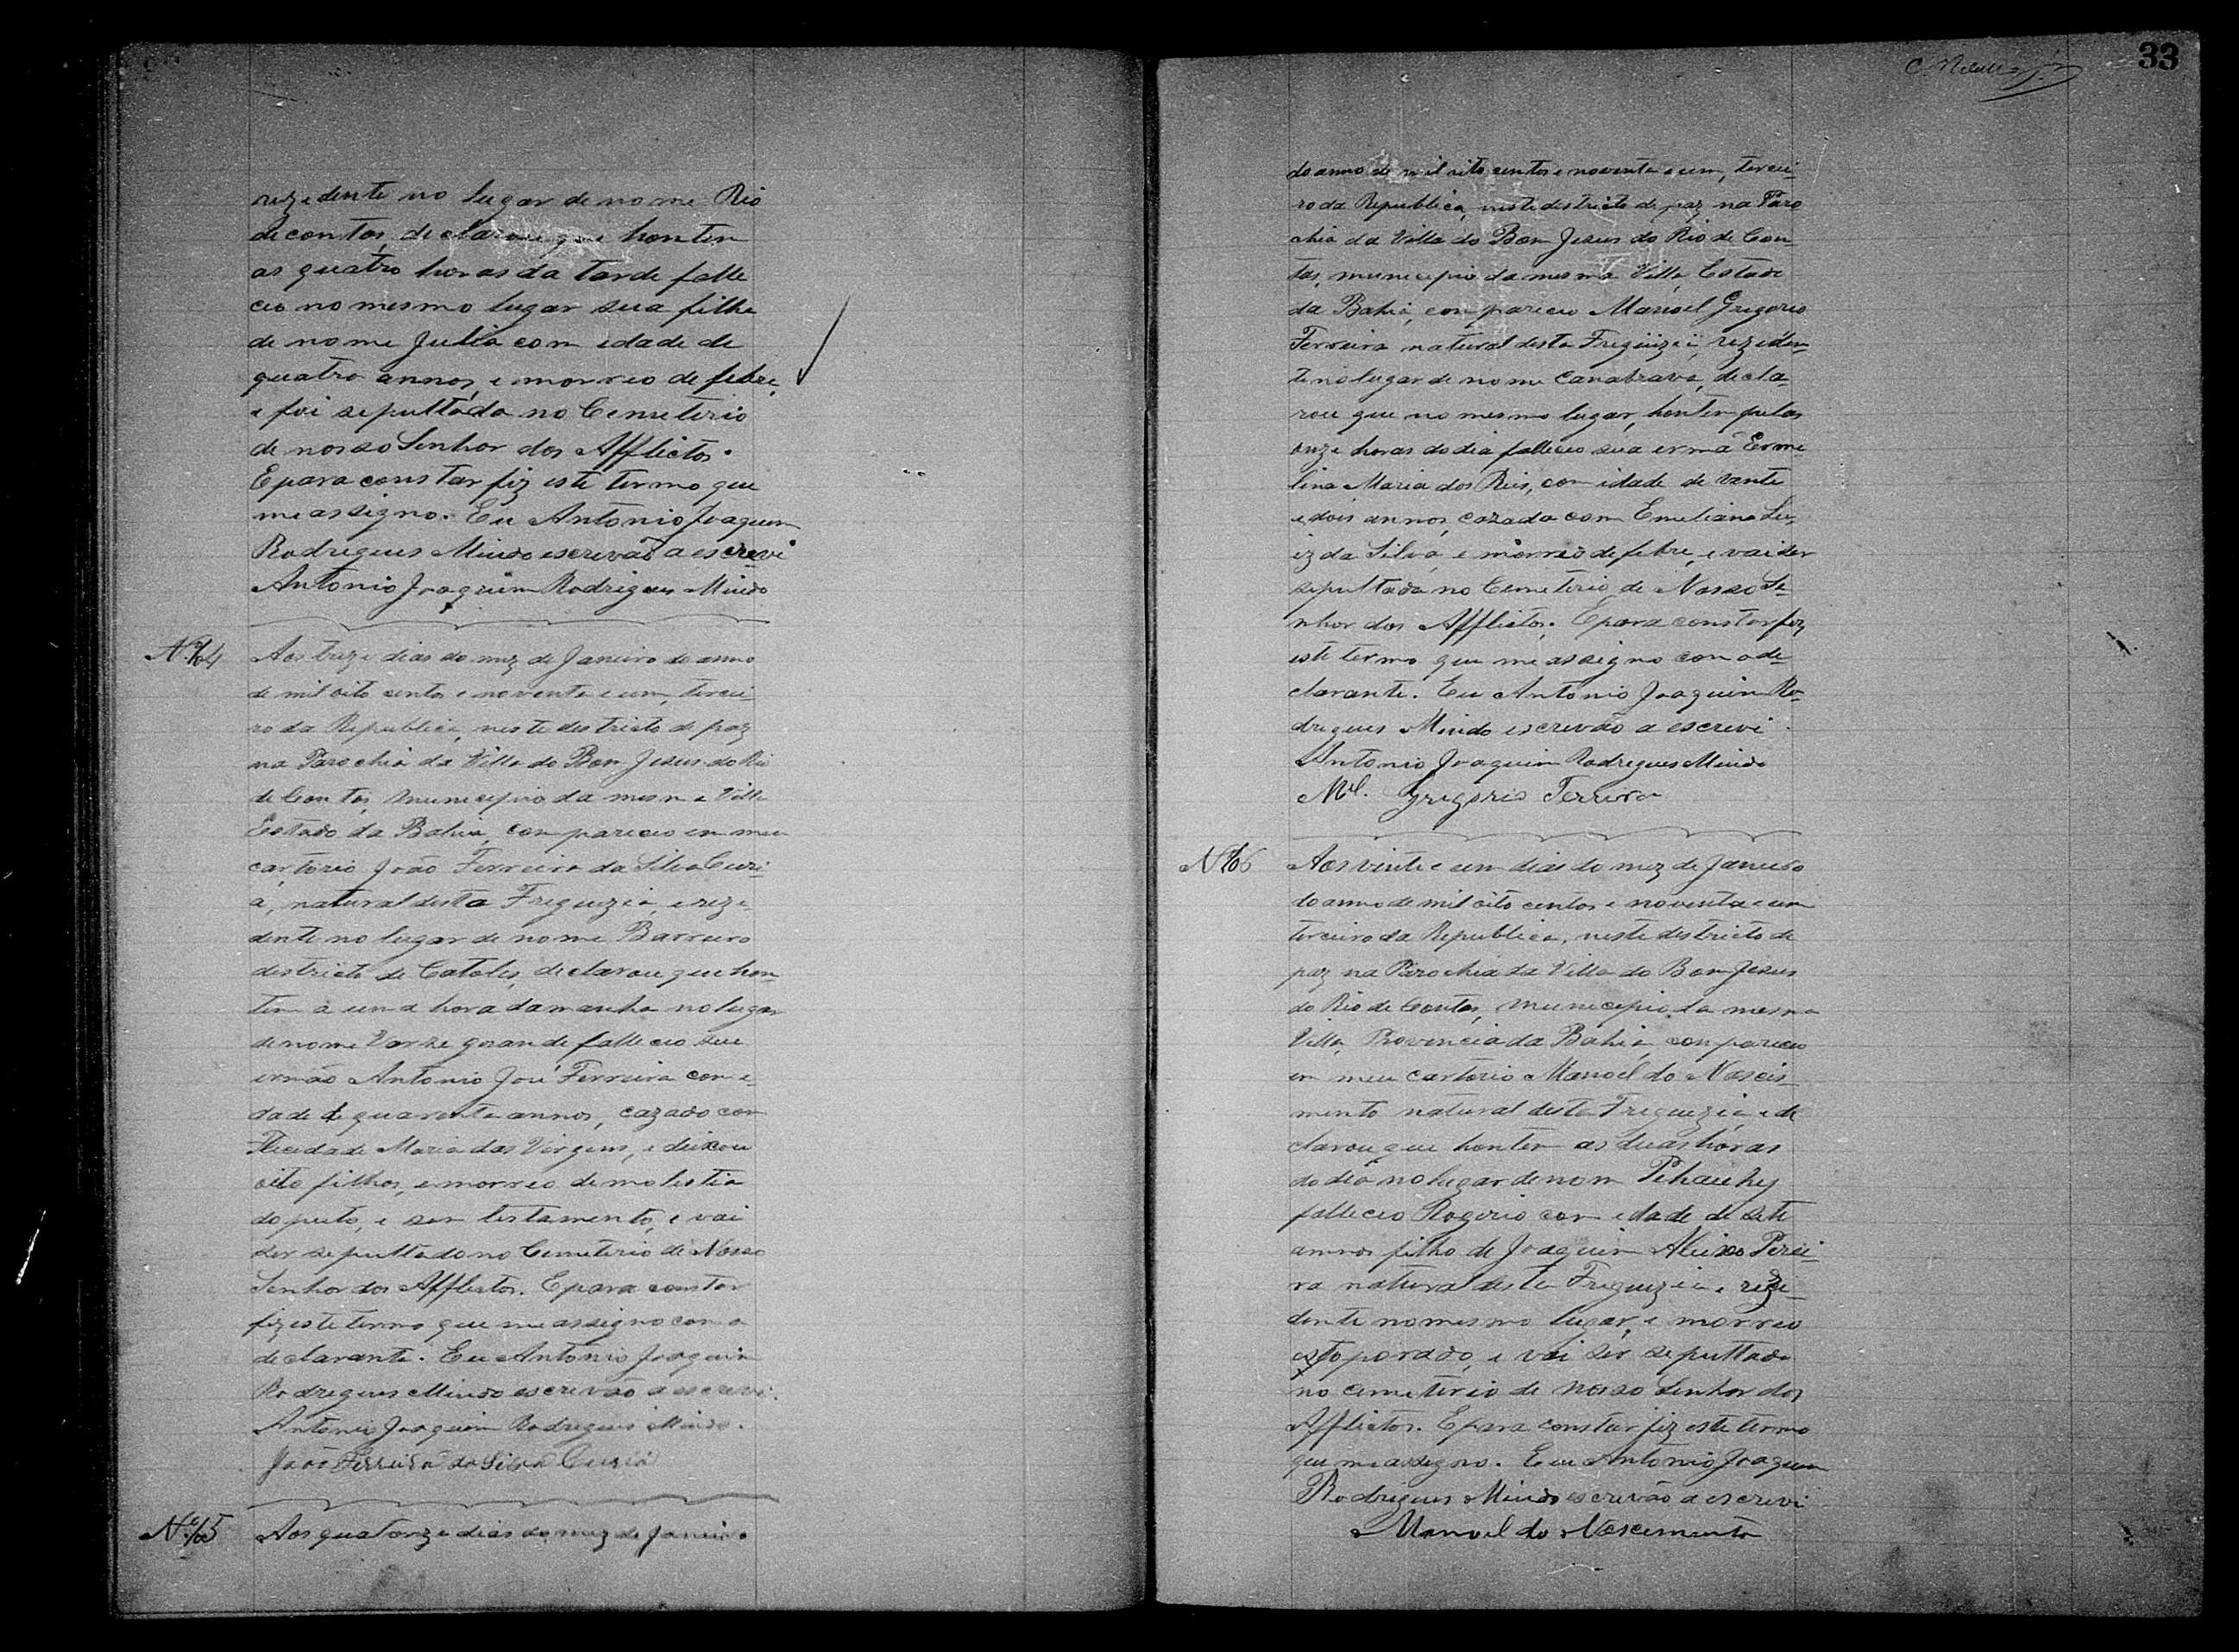 rezedente no lugar de nome Rio
de contas, declarou que hontem
as quatro horas da tarde falle
ceo no mesmo lugar sua filha
de nome Julia com edade de
quatro annos, e morreo de febre,
e foi sepultada no Cemeterio
de nosso Senhor dos Afflictos.
E para constar fiz este termo que
me assigno. Eu Antonio Joaquim
Rodrigues Mindo escrevão a escrevi
Antonio Joaquim Rodrigues Mindo
Nº 104
Aos treze dias do mez de Janeiro do anno
de mil oito centos e noventa e um, tercei-
ro da Republica, neste destricto de paz
na Parochia da Villa do Bom Jesus do Rio
de Contas, Municepio da mesma Villa
Estado da Bahia, compareceo em meu
cartorio João Ferreira da Silva Curi-
a, natural desta Freguezia, e reze-
dente no lugar de nome Barreiro
destricto de Catoles, declarou que hon-
tem a uma hora da manha no lugar
de nome Varze grande falleceo seu
ermão Antonio José Ferreira com e-
dade de quarenta annos, cazado com
Filicidade Maria das Virgens, e deixou
oito filhos, e morreo de molestia
do peito, e sem testamento, e vai
ser sepultado no Cemeterio de Nosso
Senhor dos Afflictos. E para constar
fiz este termo que me assigno com o
declarante. Eu Antonio Joaquim
Rodrigues Mindo escrevão a escrevi.
Antonio Joaquim Rodrigues Mindo.
João Ferreira da Silva Curia
Nº 105
Aos quatorze dias do mez de Janeiro
33
do anno de mil oito centos e noventa e um, tercei-
ro da Republica, neste destricto de paz na Paro
chia da Villa do Bom Jesus do Rio de Con-
tas, municepio da mesma Villa, Estado
da Bahia, compareceo Manoel Gregorio
Ferreira natural desta Freguezia, reziden-
te no lugar de nome Canabrava, decla-
rou que no mesmo lugar, hontem pelas
onze horas do dia falleceo sua ermã Erme
lina Maria dos Reis, com idade de vente
e dois annos, cazada com Emeliano Lu-
iz da Silva, e morreo de febre, e vai ser
sepultada no Cemeterio de Nosso Se-
nhor dos Afflictos. E para constar fiz
este termo que me assigno com o de-
clarante. Eu Antonio Joaquim Ro-
drigues Mindo escrevão a escrevi.
Antonio Joaquim Rodrigues Mindo
Mel. Gregorio Ferreira
Nº 106
Aos vinte e um dias do mez de Janeiro
do anno de mil oito centos e noventa e um
terceiro da Republica, neste destricto de
paz na Parochia da Villa do Bom Jesus
do Rio de Contas, Municepio da mesma
Villa, Provencia da Bahia, compareceo
em meu cartorio Manoel do Nasci-
mento natural desta Freguezia, e de
clarou que hontem as duas horas
do dia no lugar de nom
falleceo Rogerio com edade de sete
annos filho de Joaquim Aleixo Perei-
ra natural desta Freguezia e reze-
dente no mesmo lugar, e morreo
estoporado, e vai ser sepultado
no cemeterio de Nosso Senhor dos
Afflictos. E para constar fiz este termo
que me assigno. Eu Antonio Joaquim
Rodrigues Mindo escrevão a escrevi
Manoel do Nascimento